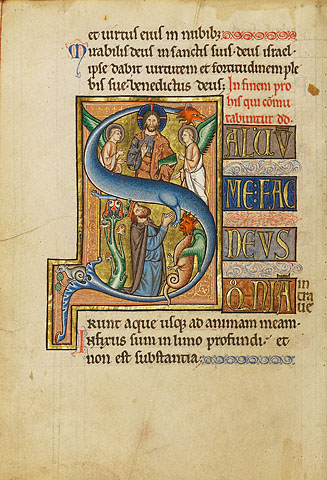 et uirtus eius in nubib;
Mirabilis deus in sanctis suis· deus israel·
ipse dabit uirtutem et fortitudinem ple
bis sue· benedictus deus;
In finem pro
bis qui cōmu
tabuntur dd.
S
ALVŪ
ME·FAC
DEVS
QNIĀ
in
traue
runt aque usq; ad animam meam·
Infixus sum in limo profundi· et
non est substantia·